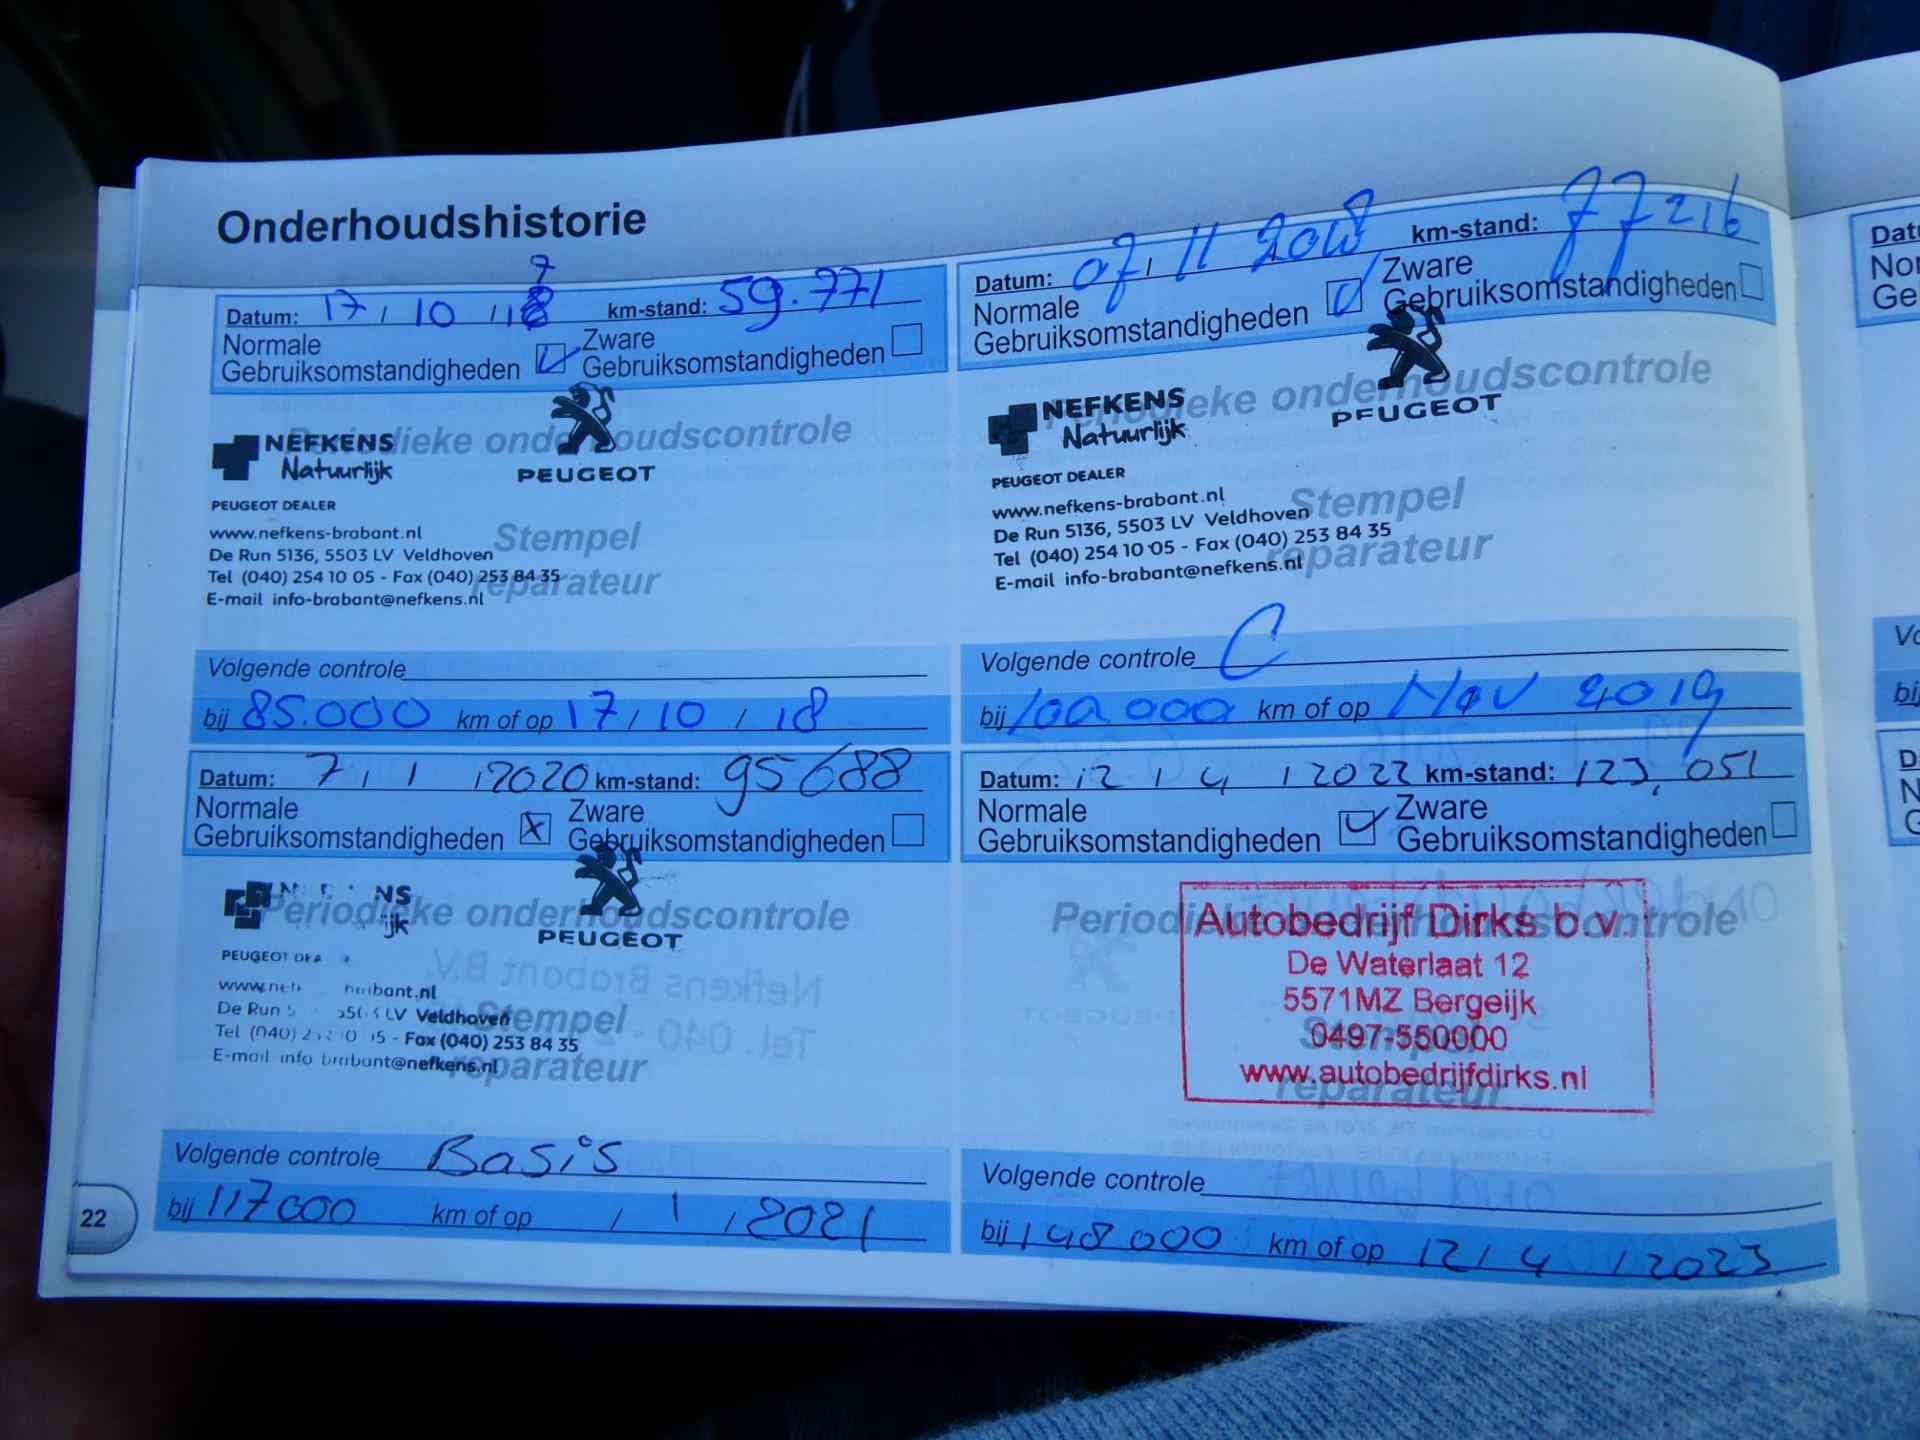 Onderhoudshistorie
Datum: 17 / 10 / 18 7 km-stand: 59.771
Normale Gebruiksomstandigheden Zware Gebruiksomstandigheden
Periodieke onderhoudscontrole
NEFKENS
Natuurlijk
PEUGEOT
PEUGEOT DEALER
www.nefkens-brabant.nl
Stempel
De Run 5136, 5503 LV Veldhoven
Tel (040) 254 10 05 - Fax (040) 253 84 35
reparateur
E-mail info-brabant@nefkens.nl
Volgende controle
bij 85.000 km of op 17 / 10 / 18
Datum: 07 / 11 2018 km-stand: 77216
Normale Gebruiksomstandigheden Zware Gebruiksomstandigheden
Periodieke onderhoudscontrole
NEFKENS
Natuurlijk
PEUGEOT
PEUGEOT DEALER
www.nefkens-brabant.nl
Stempel
De Run 5136, 5503 LV Veldhoven
Tel (040) 254 10 05 - Fax (040) 253 84 35
reparateur
E-mail info-brabant@nefkens.nl
Volgende controle C
bij 100.000 km of op Nov 2019
Datum: 7 / 1 / 2020 km-stand: 95688
Normale Gebruiksomstandigheden Zware Gebruiksomstandigheden
Periodieke onderhoudscontrole
NS
ijk
PEUGEOT
PEUGEOT DEA
www.nef brabant.nl
Stempel
De Run 5 LV Veldhoven
Tel (040) - Fax (040) 253 84 35
reparateur
E-mail info brabant@nefkens.nl
Volgende controle Basis
bij 117000 km of op / 1 / 2021
Datum: 12 / 4 / 2022 km-stand: 123,051
Normale Gebruiksomstandigheden Zware Gebruiksomstandigheden
Periodieke onderhoudscontrole
Autobedrijf Dirks b.v.
De Waterlaat 12
5571MZ Bergeijk
Stempel
0497-550000
www.autobedrijfdirks.nl
reparateur
Volgende controle
bij 148000 km of op 12 / 4 / 2023
22